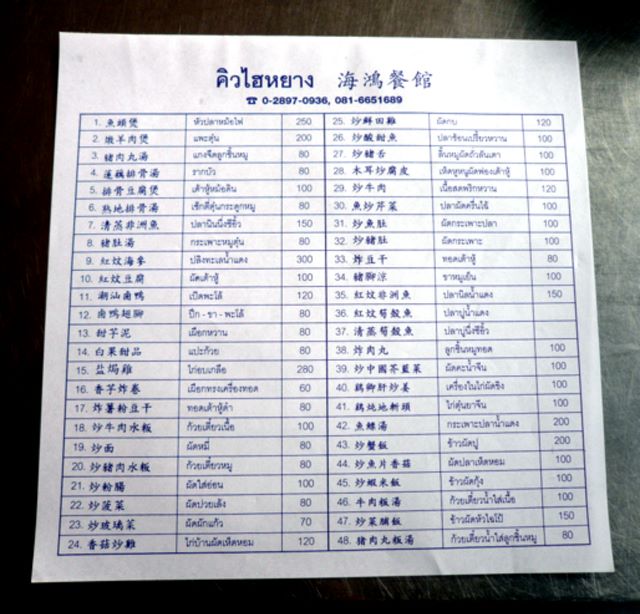 คิวไฮหยาง 海鴻餐館
☎ 0-2897-0936, 081-6651689
1. 魚頭煲 หัวปลาหม้อไฟ 250
2. 燉羊肉煲 แพะตุ๋น 200
3. 豬肉丸湯 แกงจืดลูกชิ้นหมู 80
4. 蓮藕排骨湯 รากบัว 80
5. 排骨豆腐煲 เต้าหู้หม้อดิน 100
6. 熟地排骨湯 เซ็กตี่ตุ๋นกระดูกหมู 80
7. 清蒸非洲魚 ปลานินนึ่งซีอิ้ว 150
8. 豬肚湯 กระเพาะหมูตุ๋น 80
9. 紅炆海參 ปลิงทะเลน้ำแดง 300
10. 紅炆豆腐 ผัดเต้าหู้ 100
11. 潮汕鹵鴨 เป็ดพะโล้ 120
12. 鹵鴨翅腳 ปีก - ขา - พะโล้ 80
13. 甜芋泥 เผือกหวาน 80
14. 白果甜品 แปะก๊วย 80
15. 盐焗雞 ไก่อบเกลือ 280
16. 香芋炸卷 เผือกทรงเครื่องทอด 60
17. 炸薯粉豆干 ทอดเต้าหู้ดำ 80
18. 炒牛肉水粄 ก๋วยเตี๋ยวเนื้อ 100
19. 炒面 ผัดหมี่ 80
20. 炒豬肉水粄 ก๋วยเตี๋ยวหมู 80
21. 炒粉腸 ผัดไส้อ่อน 100
22. 炒菠菜 ผัดปวยเล้ง 80
23. 炒玻璃菜 ผัดผักแก้ว 70
24. 香菇炒雞 ไก่บ้านผัดเห็ดหอม 120
25. 炒鮮田雞 ผัดกบ 120
26. 炒酸甜魚 ปลาช้อนเปรี้ยวหวาน 100
27. 炒豬舌 ลิ้นหมูผัดถั่วลันเตา 100
28. 木耳炒腐皮 เห็ดหูหนูผัดฟองเต้าหู้ 100
29. 炒牛肉 เนื้อสดพริกหวาน 120
30. 魚炒芹菜 ปลาผัดคื่นไช้ 100
31. 炒魚肚 ผัดกระเพาะปลา 100
32. 炒豬肚 ผัดกระเพาะ 100
33. 炸豆干 ทอดเต้าหู้ 80
34. 豬腳涼 ขาหมูเย็น 100
35. 紅炆非洲魚 ปลานิลน้ำแดง 150
36. 紅炆筍殼魚 ปลาบู่น้ำแดง
37. 清蒸筍殼魚 ปลาบู่นึ่งซีอิ้ว
38. 炸肉丸 ลูกชิ้นหมูทอด 100
39. 炒中國芥藍菜 ผัดคะน้าจีน 100
40. 鷄雜肝炒姜 เครื่องในไก่ผัดขิง 100
41. 鷄炖地 ไก่ตุ๋นยาจีน 100
42. 魚鰾湯 กระเพาะปลาน้ำแดง 200
43. 炒蟹飯 ข้าวผัดปู 200
44. 炒魚片香菇 ผัดปลาเห็ดหอม 100
45. 炒蝦米飯 ข้าวผัดกุ้ง 100
46. 牛肉粄湯 ก๋วยเตี๋ยวน้ำใส่เนื้อ 100
47. 炒菜脯飯 ข้าวผัดหัวไชโป๊ 150
48. 豬肉丸粄湯 ก๋วยเตี๋ยวน้ำใส่ลูกชิ้นหมู 80